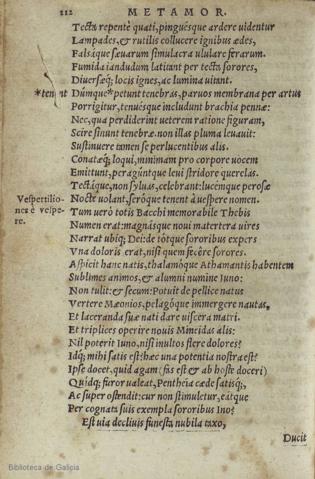 112 METAMOR.
Tecta repentè quati, pinguesque ardere uidentur
Lampades, & rutilis collucere ignibus ædes,
Falsáque sæuarum simulacra ululare ferarum.
Fumida iandudum latitant per tecta sorores,
Diuersæq; locis ignes, ac lumina uitant.
*tenent Dúmque *petunt tenebras, paruos membrana per artus
Porrigitur, tenuésque includunt brachia pennæ:
Nec, qua perdiderint ueterem ratione figuram,
Scire sinunt tenebræ. non illas pluma leuauit:
Sustinuere tamen se perlucentibus alis.
Conatæq; loqui, minimam pro corpore uocem
Emittunt, peragúntque leui stridore querelas.
Tectáque, non syluas, celebrant: lucemque perosæ
Vespertilio- Nocte uolant, seróque tenent à uespere nomen.
nes è uespe- Tum uerò totis Bacchi memorabile Thebis
re. Numen erat: magnásque noui matertera uires
Narrat ubiq; Dei: de tótque sororibus expers
Vna doloris erat, nisi quem fecêre sorores.
Aspicit hanc natis, thalamóque Athamantis habentem
Sublimes animos, & alumni numine Iuno:
Non tulit: & secum: Potuit de pellice natus
Vertere Mæonios, pelagóque immergere nautas,
Et laceranda suæ nati dare uiscera matri.
Et triplices operire nouis Mineidas alis:
Nil poterit Iuno, nisi inultos flere dolores?
Idq; mihi satis est? hæc una potentia nostra est?
Ipse docet, quid agam (fas est & ab hoste doceri)
Quidq; furor ualeat, Pentheia cæde satisq;,
Ac super ostendit: cur non stimuletur, eátque
Per cognata suis exempla sororibus Ino?
Est uia decliuis funesta nubila taxo,
Ducit
Biblioteca de Galicia